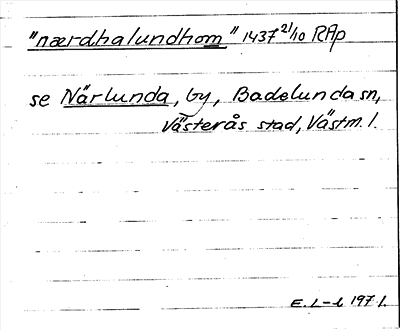 "nærdhalundhom" 1437 21/10 RAp
se Närlunda, by, Badelunda sn,
Västerås stad, Västm. l.
E. L-l 1971.